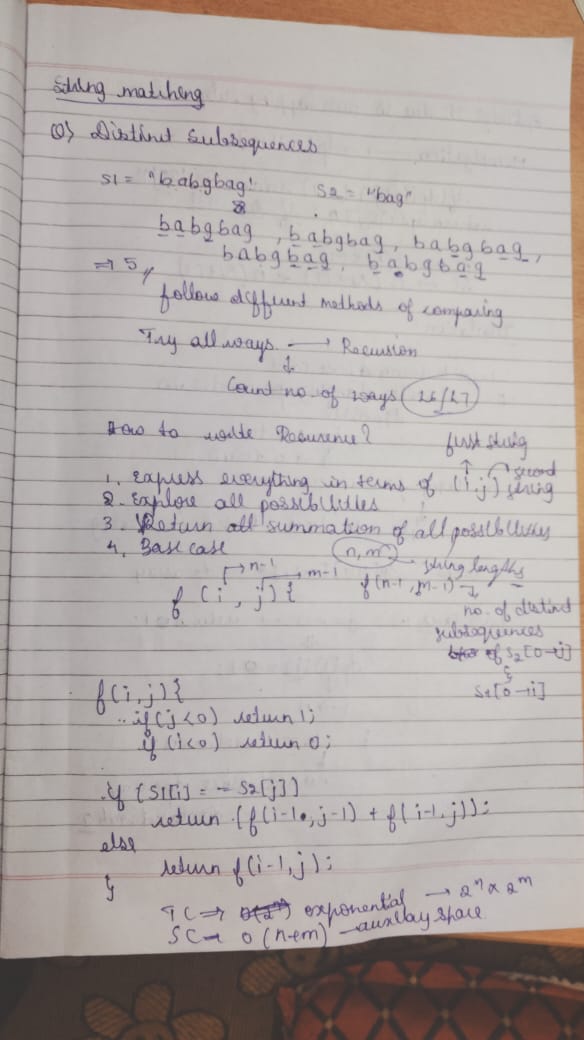 String matching
Q) Distinct Subsequences
S1 = "babgbag" S2 = "bag"
babgbag, babgbag, babgbag,
babgbag, babgbag
⇒ 5//
follow different methods of comparing
Try all ways → Recursion
↓
Count no. of ways (L6/L7)
How to write Recurence?
first string
1. Express everything in terms of (i,j) second string
2. Explore all possibilities
3. Return all summation of all possibilities
4. Base case
(n, m) → string lengths
→ n-1 → m-1
f (i, j) {
f(n-1, m-1) →
no. of distinct
subsequences
of S2[0→j]
S1[0→i]
f(i, j) {
if (j<0) return 1;
if (i<0) return 0;
if (S1[i] == S2[j])
return (f(i-1, j-1) + f(i-1, j));
else
return f(i-1, j);
}
TC ⇒ exponential → 2ⁿ x 2ᵐ
SC → O(n+m) → auxilary space